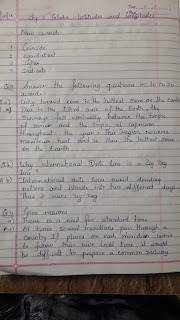 Ch 3 Globe : Latitudes and Longitudes
New words
1 Coincide
2 equidistant
3
4 Indicate
Q Answer the following questions in 20 to 30 words
Q a) Why torrid zone is the hottest zone on the earth
A a) Due to the tilted axis of the Earth, the
Sunrays fall vertically between the tropic
of cancer and the tropic of capricorn
throughout the year. This region receives
maximum heat and is thus the hottest zone
on the Earth.
Q b) Why International Date Line is a zig zag
line?
A b) International date line avoid dividing
nations and islands into two different days.
Thus it runs zig-zag
Q Give reasons
a) There is a need for standard time.
A a) At times several meridians pass through a
country. If places on each meridian were
to follow their own local time, it would
be difficult to prepare a common railway